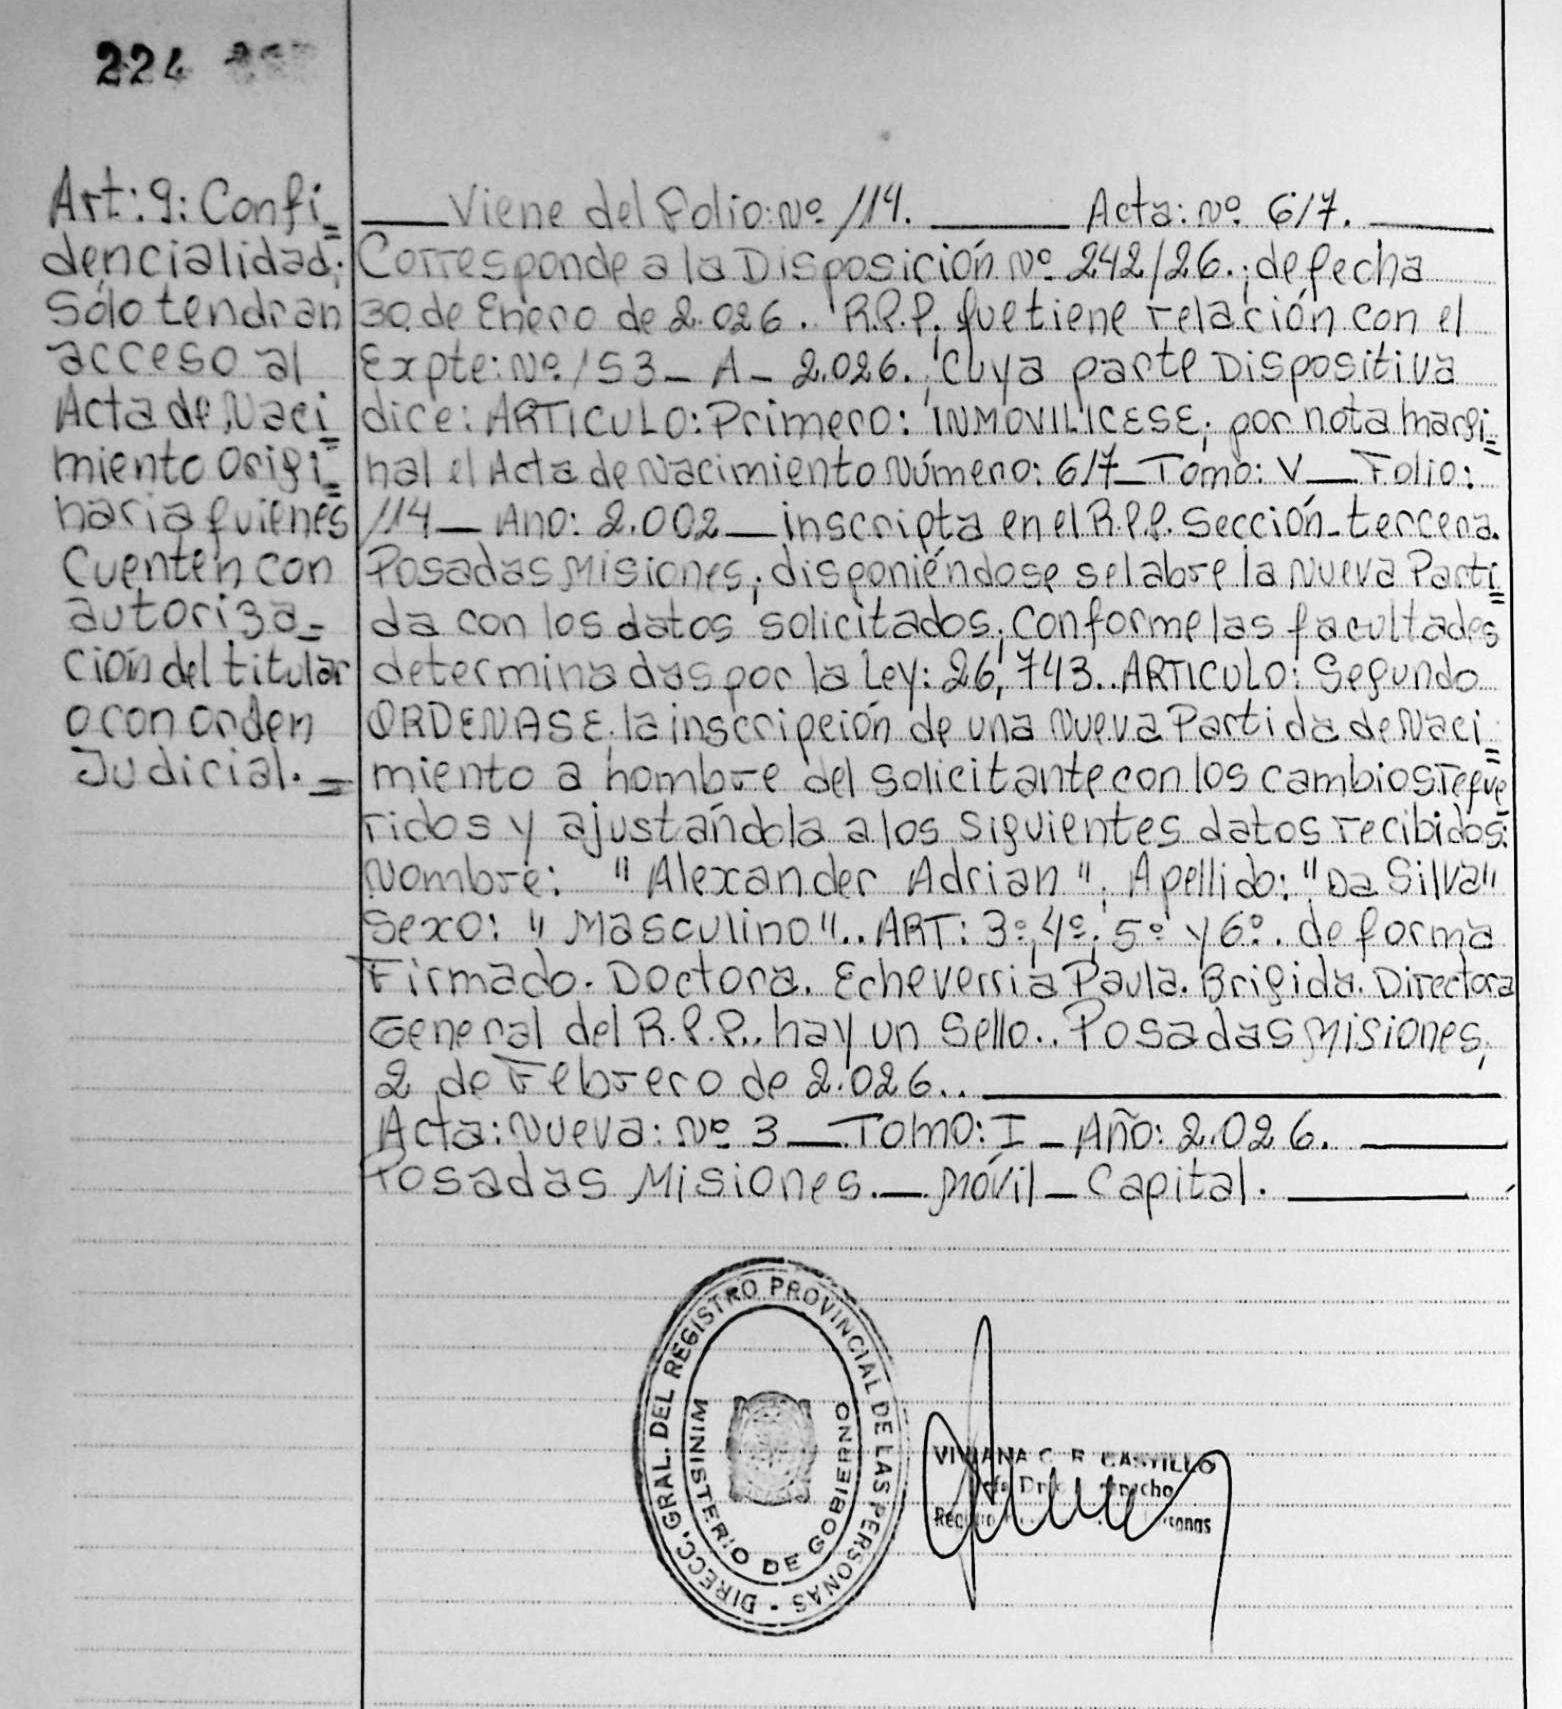 224
Art: 9: Confi=
dencialidad;
Sólo tendran
acceso al
Acta de Naci=
miento Origi=
naria quienes
Cuenten con
autoriza=
ción del titular
o con orden
Judicial. =
Viene del Folio: Nº 114. Acta: Nº 617.
Corresponde a la Disposición Nº 242/26.; de fecha
30 de Enero de 2.026. R.P.P. que tiene relación con el
Expte: Nº 153 - A - 2.026. ; Cuya parte Dispositiva
dice: ARTICULO: Primero: INMOVILICESE; por nota margi=
nal el Acta de Nacimiento Número: 617 _ Tomo: V _ Folio:
114 _ Ano: 2.002 _ inscripta en el R.P.P. Sección - tercera.
Posadas Misiones; disponiéndose se labre la Nueva Parti=
da con los datos solicitados; Conforme las facultades
determinadas por la Ley: 26,743.. ARTICULO: Segundo
ORDENASE; la inscripción de una Nueva Partida de Naci=
miento a nombre del solicitante con los cambios reque
ridos y ajustándola a los siguientes datos recibidos:
Nombre: "Alexander Adrian"; Apellido: "Da Silva"
Sexo: "Masculino".. ART: 3º; 4º; 5º y 6º. de forma
Firmado. Doctora. Echeverria Paula. Brigida. Directora
General del R.P.P.. hay un Sello.. Posadas Misiones,
2 de Febrero de 2.026..
Acta: Nueva: Nº 3 _ Tomo: I _ Año: 2.026.
Posadas Misiones. _ Móvil _ Capital.
DIRECC. GRAL. DEL REGISTRO PROVINCIAL DE LAS PERSONAS
MINISTERIO DE GOBIERNO
VIVIANA C. R. CASTILLO